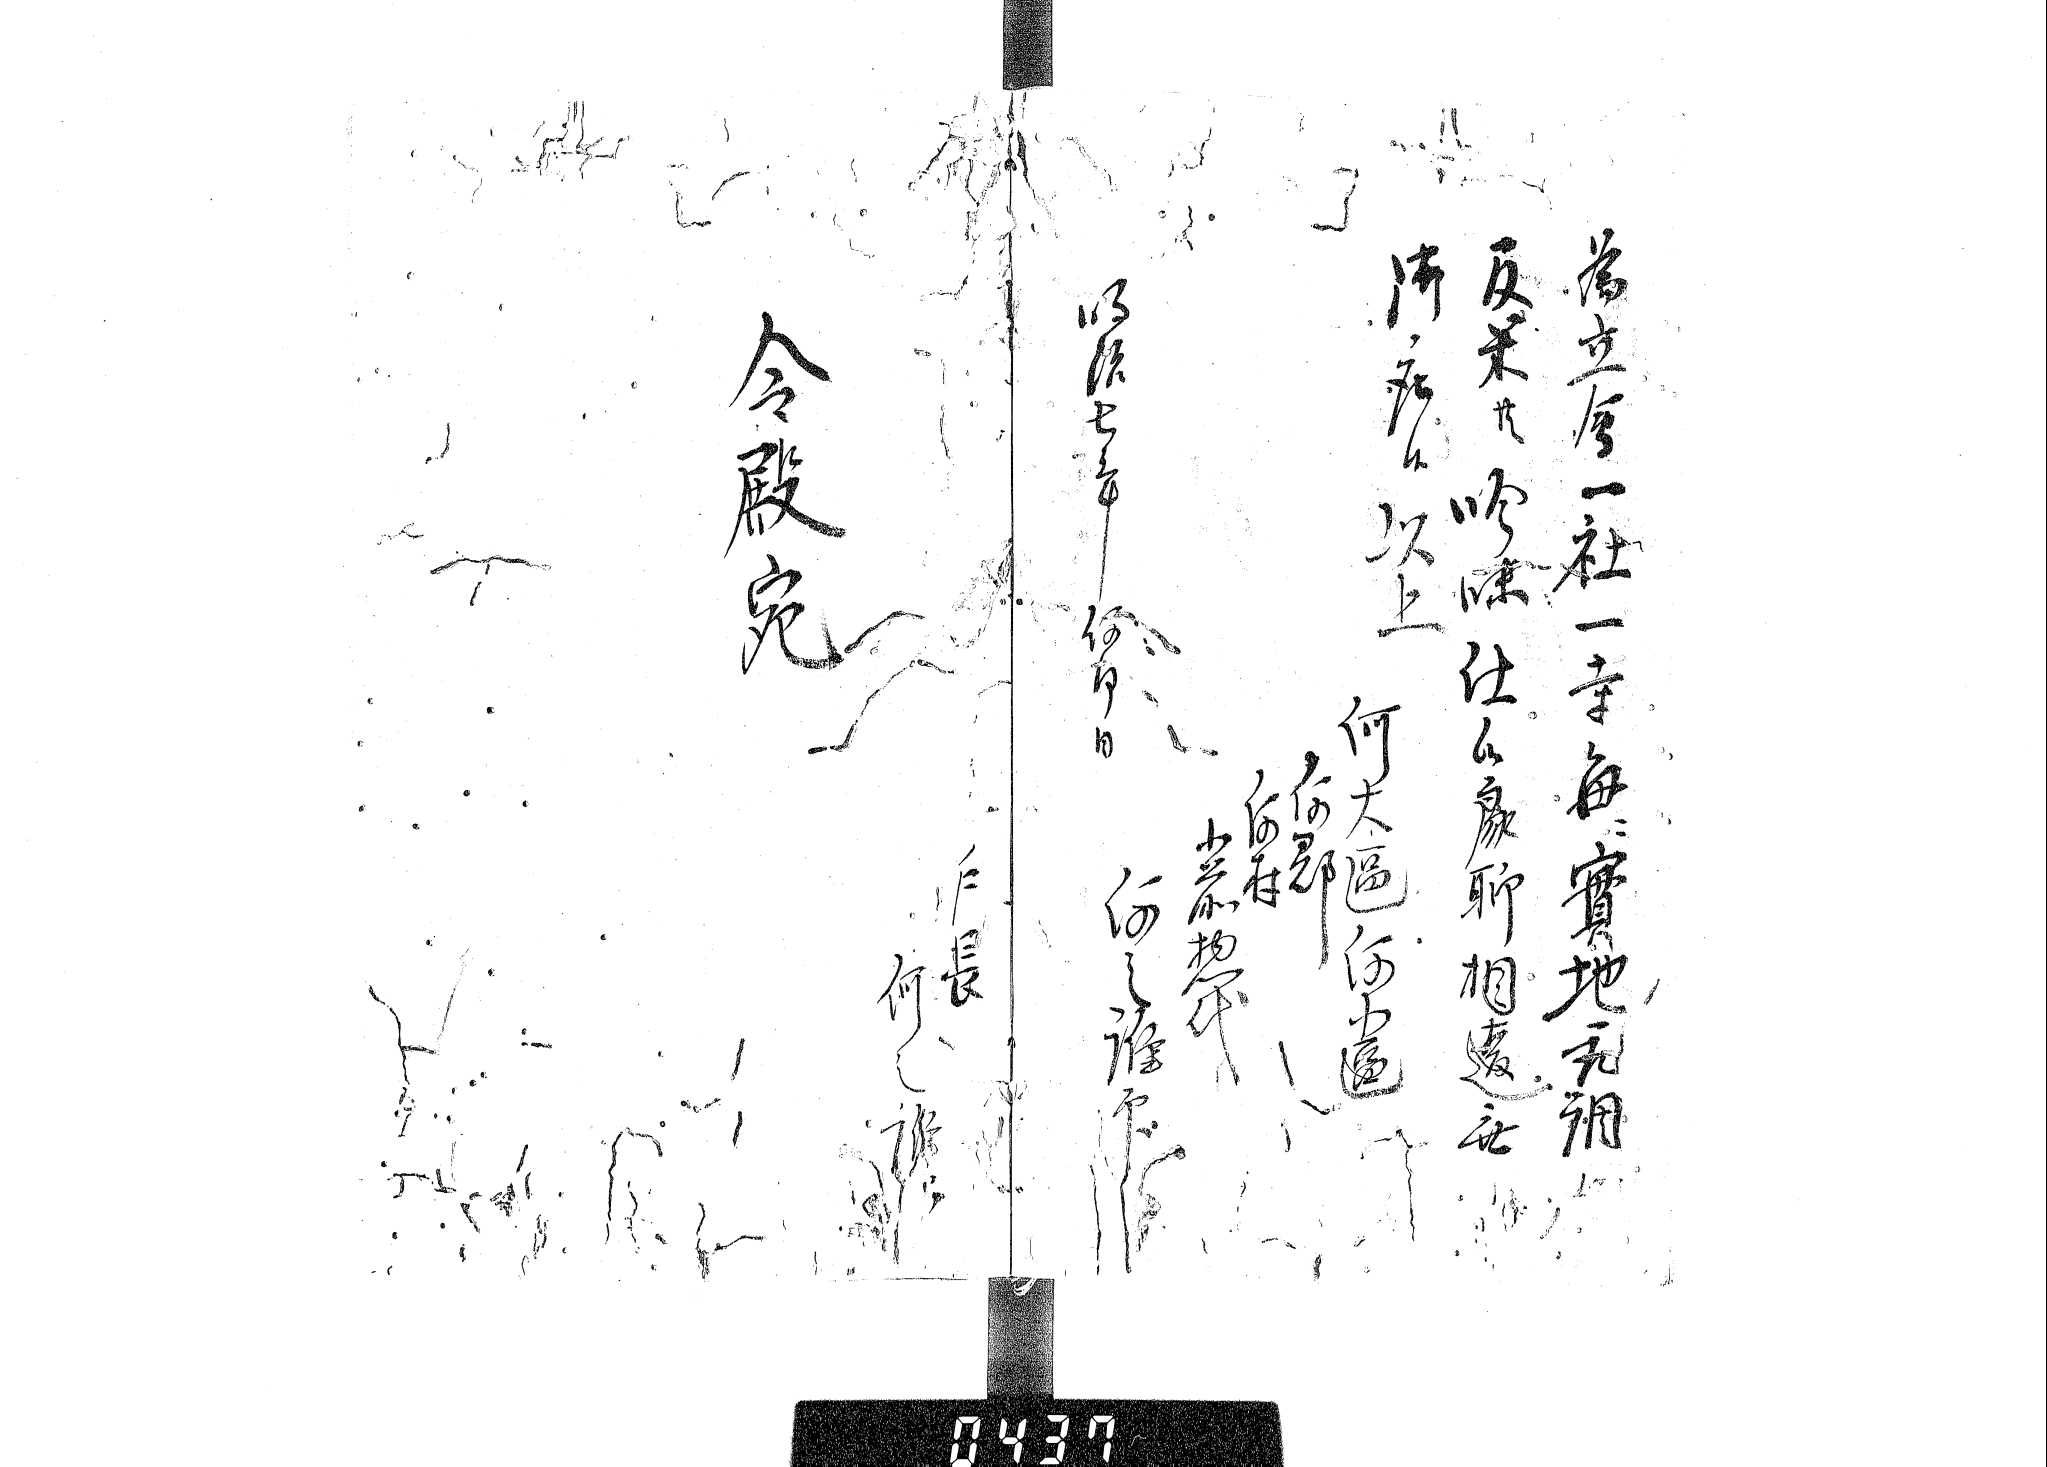 為立会一社一寺毎ニ實地取調
反米共吟味仕候處聊相違無
御座候以上
何大區何小區
何郡
何村
小前惣代
明治七年何月日
何之誰印
戸長
何之誰印
令殿宛
0437